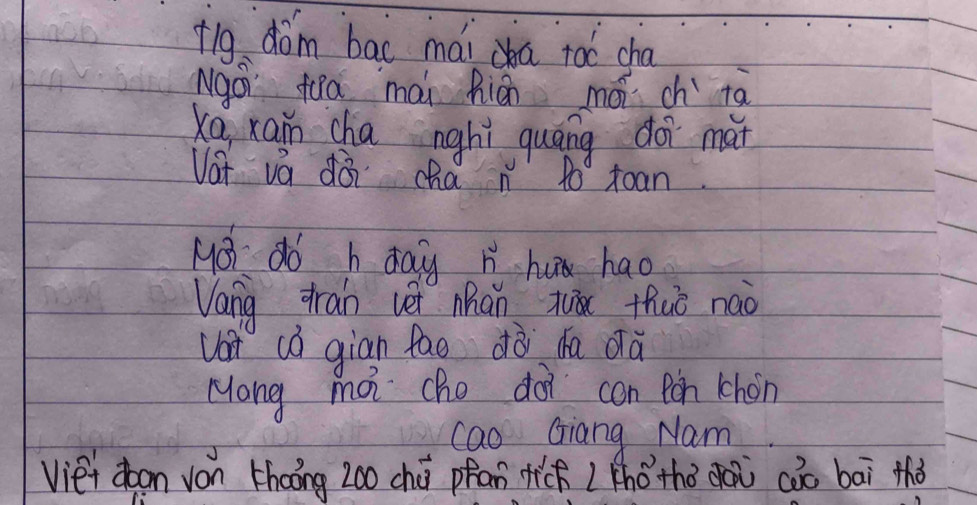 tlg đốm bạc mái tóc cha
Ngồi tựa mái hiên mỗi chỉ ta
Xa xăm cha nghĩ quầng đôi mắt
Vất vả đời cha n~ lo toan.
Mới đó h đây n~ hư hao
Vầng trán vết nhăn tựa thuở nào
Vất cả gian lao đời da đã
Mong mỏi cho đời con lớn khôn
Cao Giang Nam.
Viết đoạn văn khoảng 200 chữ phân tích 2 khổ thơ đầu của bài thơ